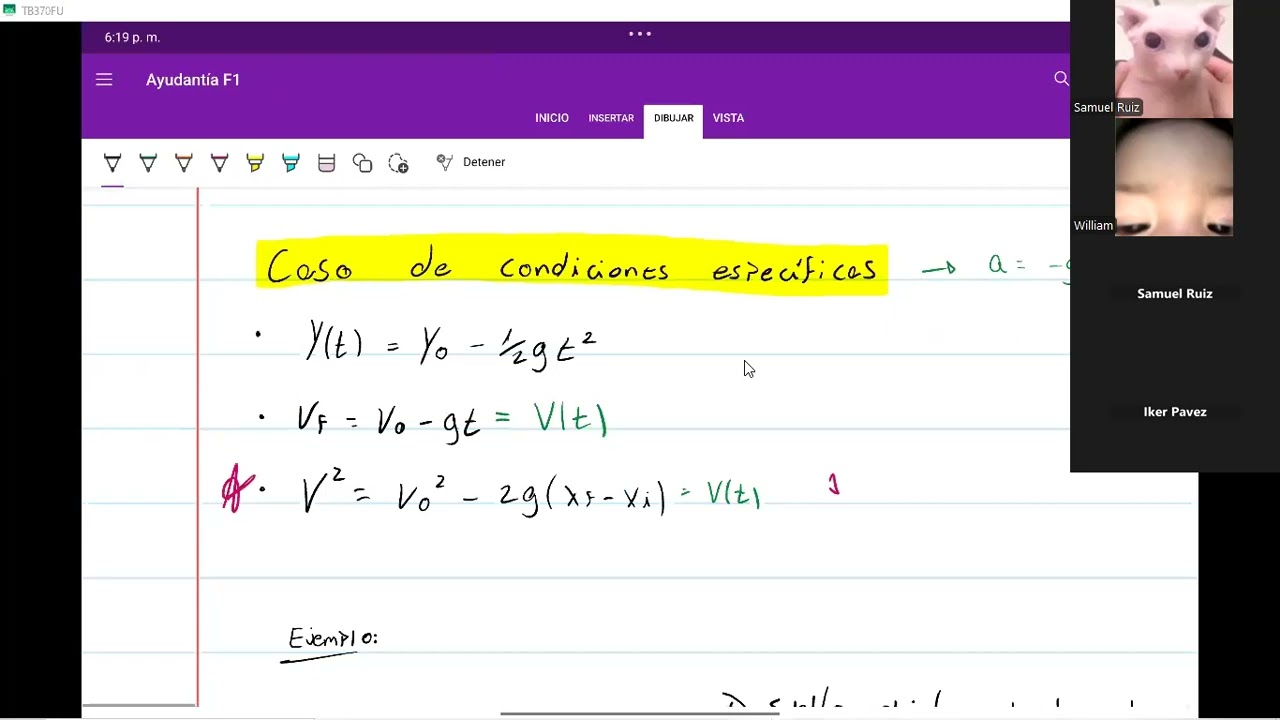 TB370FU
6:19 p. m.
Ayudantía F1
INICIO INSERTAR DIBUJAR VISTA
Detener
Samuel Ruiz
William
Samuel Ruiz
Iker Pavez
Caso de condiciones específicas → a = -g
• Y(t) = Y₀ - ½gt²
• VF = V₀ - gt = V(t)
• V² = V₀² - 2g(XF - Xi) = V(t)
Ejemplo: